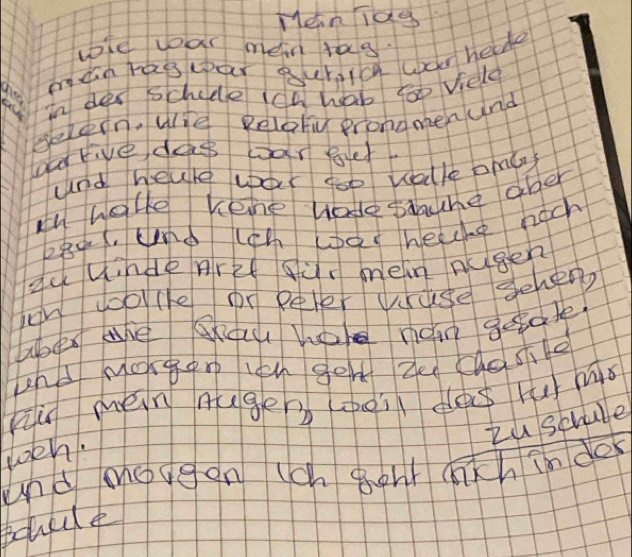 Mein Tag
wie war mein tag.
mein tag war gut, ich war heute
in der schule ich hab so viele
gelern. wie Relativ pronomen und
das war gut.
und heute war so kalte
ich hatte keine aber
egal. und ich war heute noch
zu kinde Arzt für mein Augen
ich wollte Dr Peter kruse sehen,
aber die Frau hate nein gesate.
und morgen ich geht zu Charite
für mein Augen, weil das tut mir
weh.
zu schule
und morgen ich geht nich in der
schule